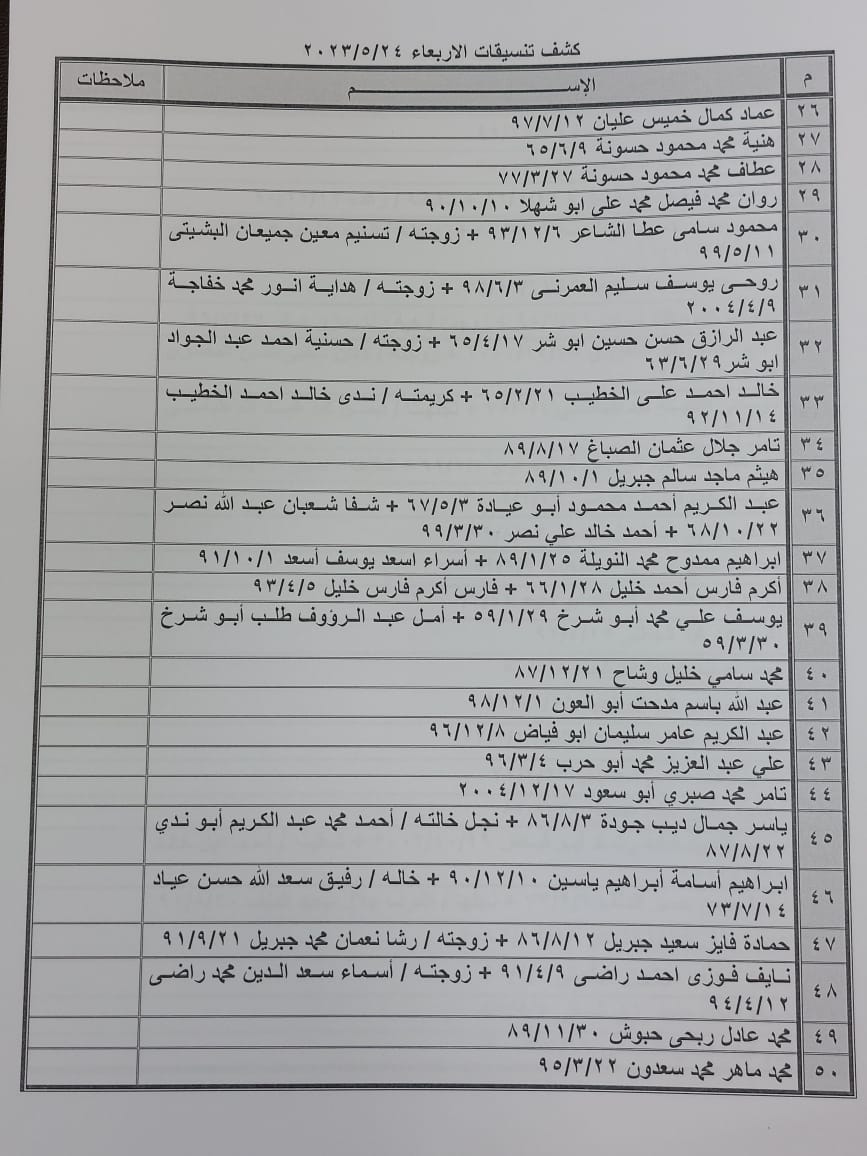 كشف تنسيقات الاربعاء ٢٠٢٣/٥/٢٤
م الإســـم ملاحظات
٢٦ عماد كمال خميس عليان ٩٧/٧/١٢
٢٧ هنية محمد محمود حسونة ٦٥/٦/٩
٢٨ عطاف محمد محمود حسونة ٧٧/٣/٢٧
٢٩ روان محمد فيصل محمد على ابو شهلا ٩٠/١٠/١٠
٣٠ محمود سامى عطا الشاعر ٩٣/١٢/٦ + زوجته / تسنيم معين جميعان البشيتى
٩٩/٥/١١
٣١ روحى يوسف سليم العمرنى ٩٨/٦/٣ + زوجته / هداية انور محمد خفاجة
٢٠٠٤/٤/٩
٣٢ عبد الرازق حسن حسين ابو شر ٦٥/٤/١٧ + زوجته / حسنية احمد عبد الجواد
ابو شر ٦٣/٦/٢٩
٣٣ خالد احمد على الخطيب ٦٥/٢/٢١ + كريمته / ندى خالد احمد الخطيب
٩٢/١١/١٤
٣٤ تامر جلال عثمان الصباغ ٨٩/٨/١٧
٣٥ هيثم ماجد سالم جبريل ٨٩/١٠/١
٣٦ عبد الكريم أحمد محمود أبو عيادة ٦٧/٥/٣ + شفا شعبان عبد الله نصر
٦٨/١٠/٢٢ + أحمد خالد علي نصر ٩٩/٣/٣٠
٣٧ ابراهيم ممدوح محمد النويلة ٨٩/١/٢٥ + أسراء اسعد يوسف أسعد ٩١/١٠/١
٣٨ أكرم فارس أحمد خليل ٦٦/١/٢٨ + فارس أكرم فارس خليل ٩٣/٤/٥
٣٩ يوسف علي محمد أبو شرخ ٥٩/١/٢٩ + أمل عبد الرؤوف طلب أبو شرخ
٥٩/٣/٣٠
٤٠ محمد سامي خليل وشاح ٨٧/١٢/٢١
٤١ عبد الله باسم مدحت أبو العون ٩٨/١٢/١
٤٢ عبد الكريم عامر سليمان ابو فياض ٩٦/١٢/٨
٤٣ علي عبد العزيز محمد أبو حرب ٩٦/٣/٤
٤٤ تامر محمد صبري أبو سعود ٢٠٠٤/١٢/١٧
٤٥ ياسر جمال ديب جودة ٨٦/٨/٣ + نجل خالته / أحمد محمد عبد الكريم أبو ندي
٨٧/٨/٢٢
٤٦ ابراهيم أسامة أبراهيم ياسين ٩٠/١٢/١٠ + خاله / رفيق سعد الله حسن عياد
٧٣/٧/١٤
٤٧ حمادة فايز سعيد جبريل ٨٦/٨/١٢ + زوجته / رشا نعمان محمد جبريل ٩١/٩/٢١
٤٨ نايف فوزى احمد راضى ٩١/٤/٩ + زوجته / أسماء سعد الدين محمد راضى
٩٤/٤/١٢
٤٩ محمد عادل ربحى حبوش ٨٩/١١/٣٠
٥٠ محمد ماهر محمد سعدون ٩٥/٣/٢٢